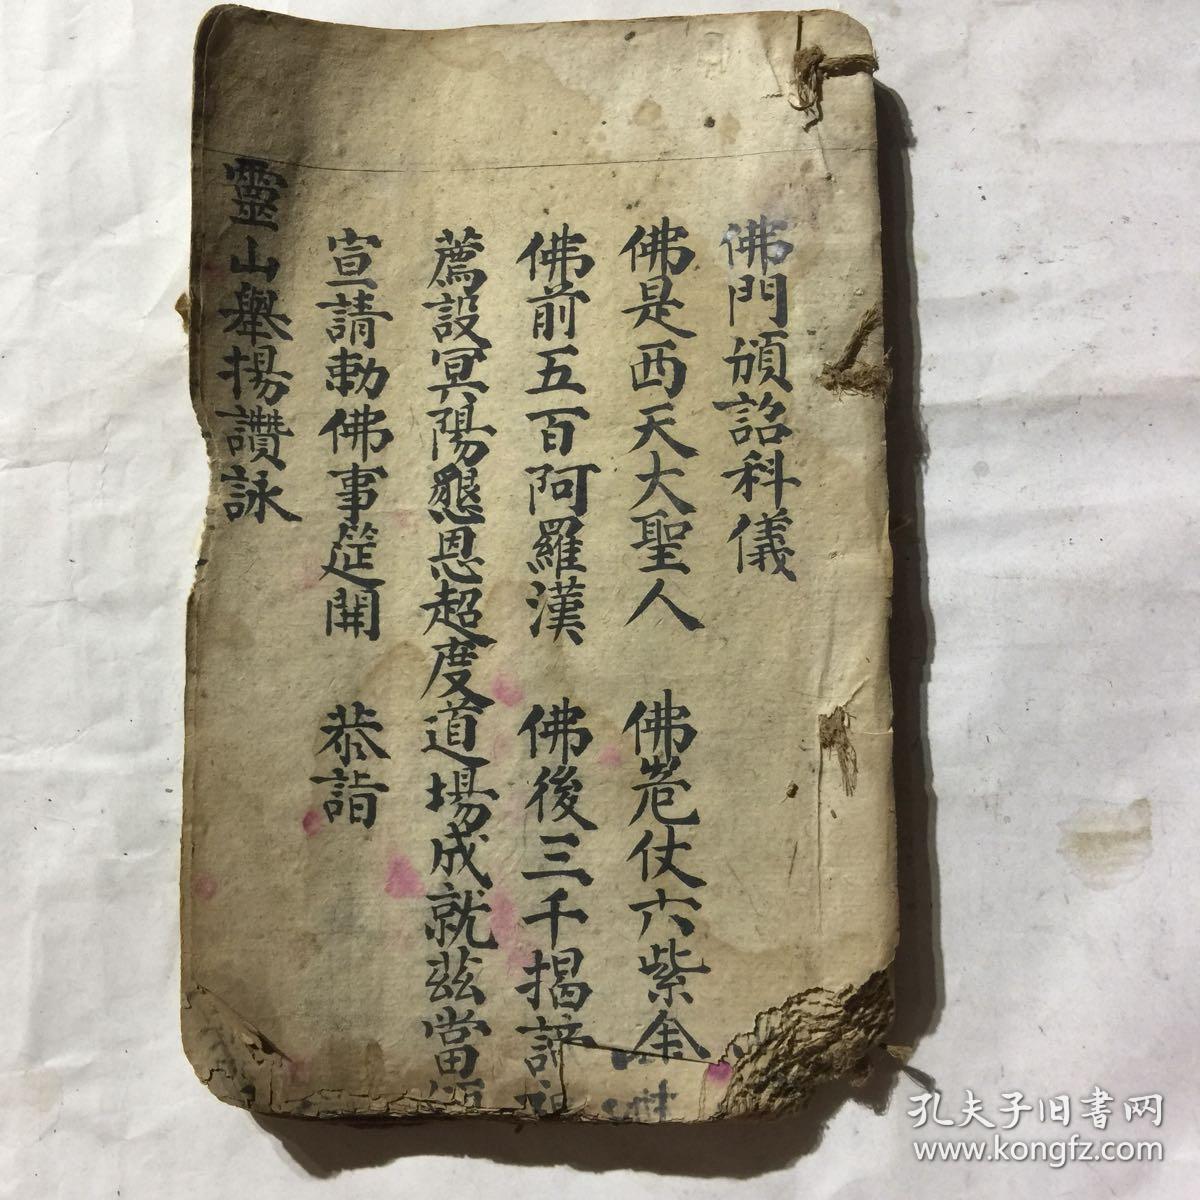 佛門頒詔科儀
佛是西天大聖人 佛𦮼仗六紫金
佛前五百阿羅漢 佛後三千揭諦
薦設冥陽懇恩超度道場成就茲當
宣請勅佛事筵開 恭詣
靈山舉揚讚詠
孔夫子旧書网
www.kongfz.com